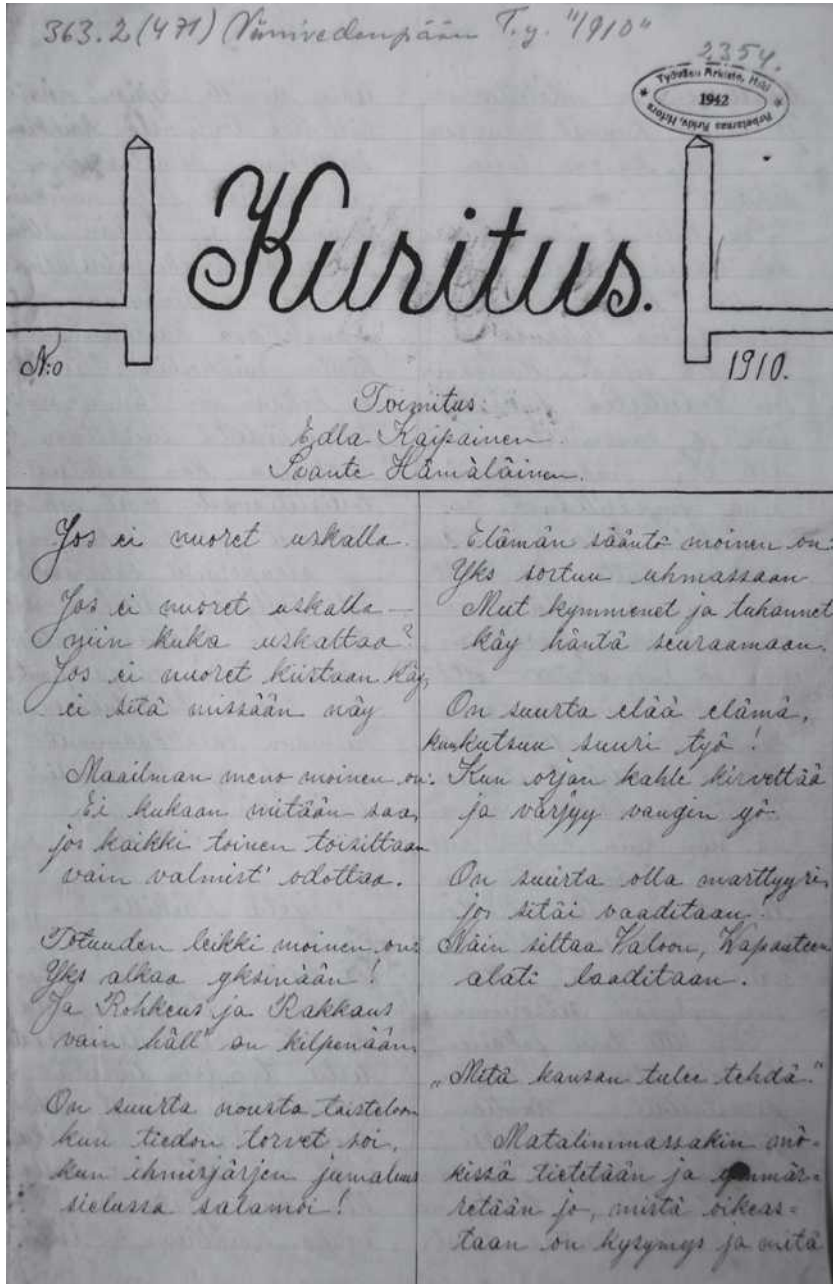 363.2(471) Niinivedenpään T.y. "1910"
2354.
Työväen Arkisto, H:ki
1942
Arbetarnas Arkiv, H:fors
Kuritus.
N:o
1910.
Toimitus:
Edla Kaipainen.
Svante Hämäläinen.
Jos ei nuoret uskalla.
Jos ei nuoret uskalla —
niin kuka uskaltaa?
Jos ei nuoret kiistaan käy,
ei sitä missään näy
Maailman meno moinen on:
Ei kukaan mitään saa,
jos kaikki toinen toisiltaan
vain valmist' odottaa.
Totuuden leikki moinen on:
Yks alkaa yksinään!
Ja Rohkeus ja Rakkaus
vain häll' on kilpenään,
On suurta nousta taisteloon
kun tiedon torvet soi,
kun ihmisjärjen jumaluus
sielussa salamoi!
Elämän sääntö moinen on:
Yks sortuu uhmassaan
Mut kymmenet ja tuhannet
käy häntä seuraamaan.
On suurta elää elämä,
kun kutsuu suuri työ!
Kun orjan kahle kirvettää
ja värjyy vangin yö.
On suurta olla marttyyri,
jos sitäi vaaditaan!
Näin siltaa Valoon, Vapauteen
alati laaditaan.
„Mitä kansan tulee tehdä."
Matalimmassakin mö-
kissä tietetään ja ymmär-
retään jo, mistä oikeas-
taan on kysymys ja mitä